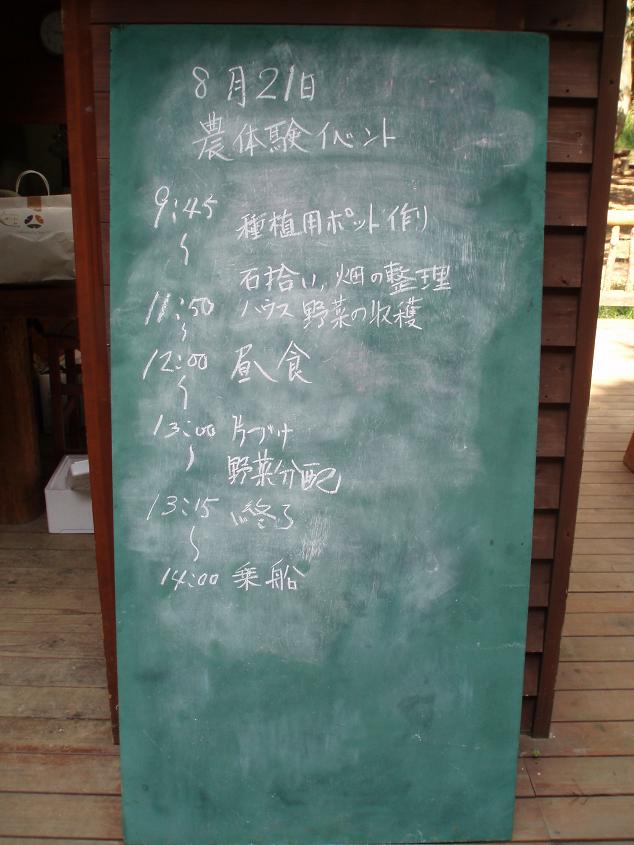 8月21日
農体験イベント
9:45 種植用ポット作り
〜
石拾い,畑の整理
11:50 ハウス野菜の収穫
〜
12:00 昼食
〜
13:00 片づけ
〜 野菜分配
13:15 終了
〜
14:00 乗船